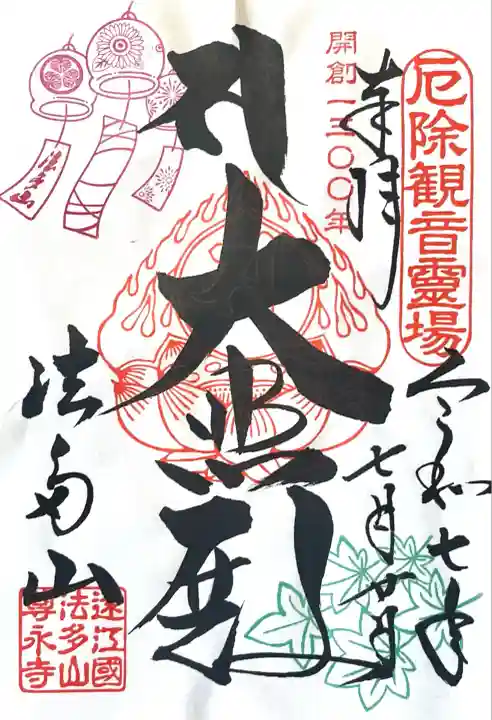 厄除観音靈場
奉拝
開創一三〇〇年
令和七年
七月廿日
大悲殿
法多山
法多山
遠江國
法多山
尊永寺